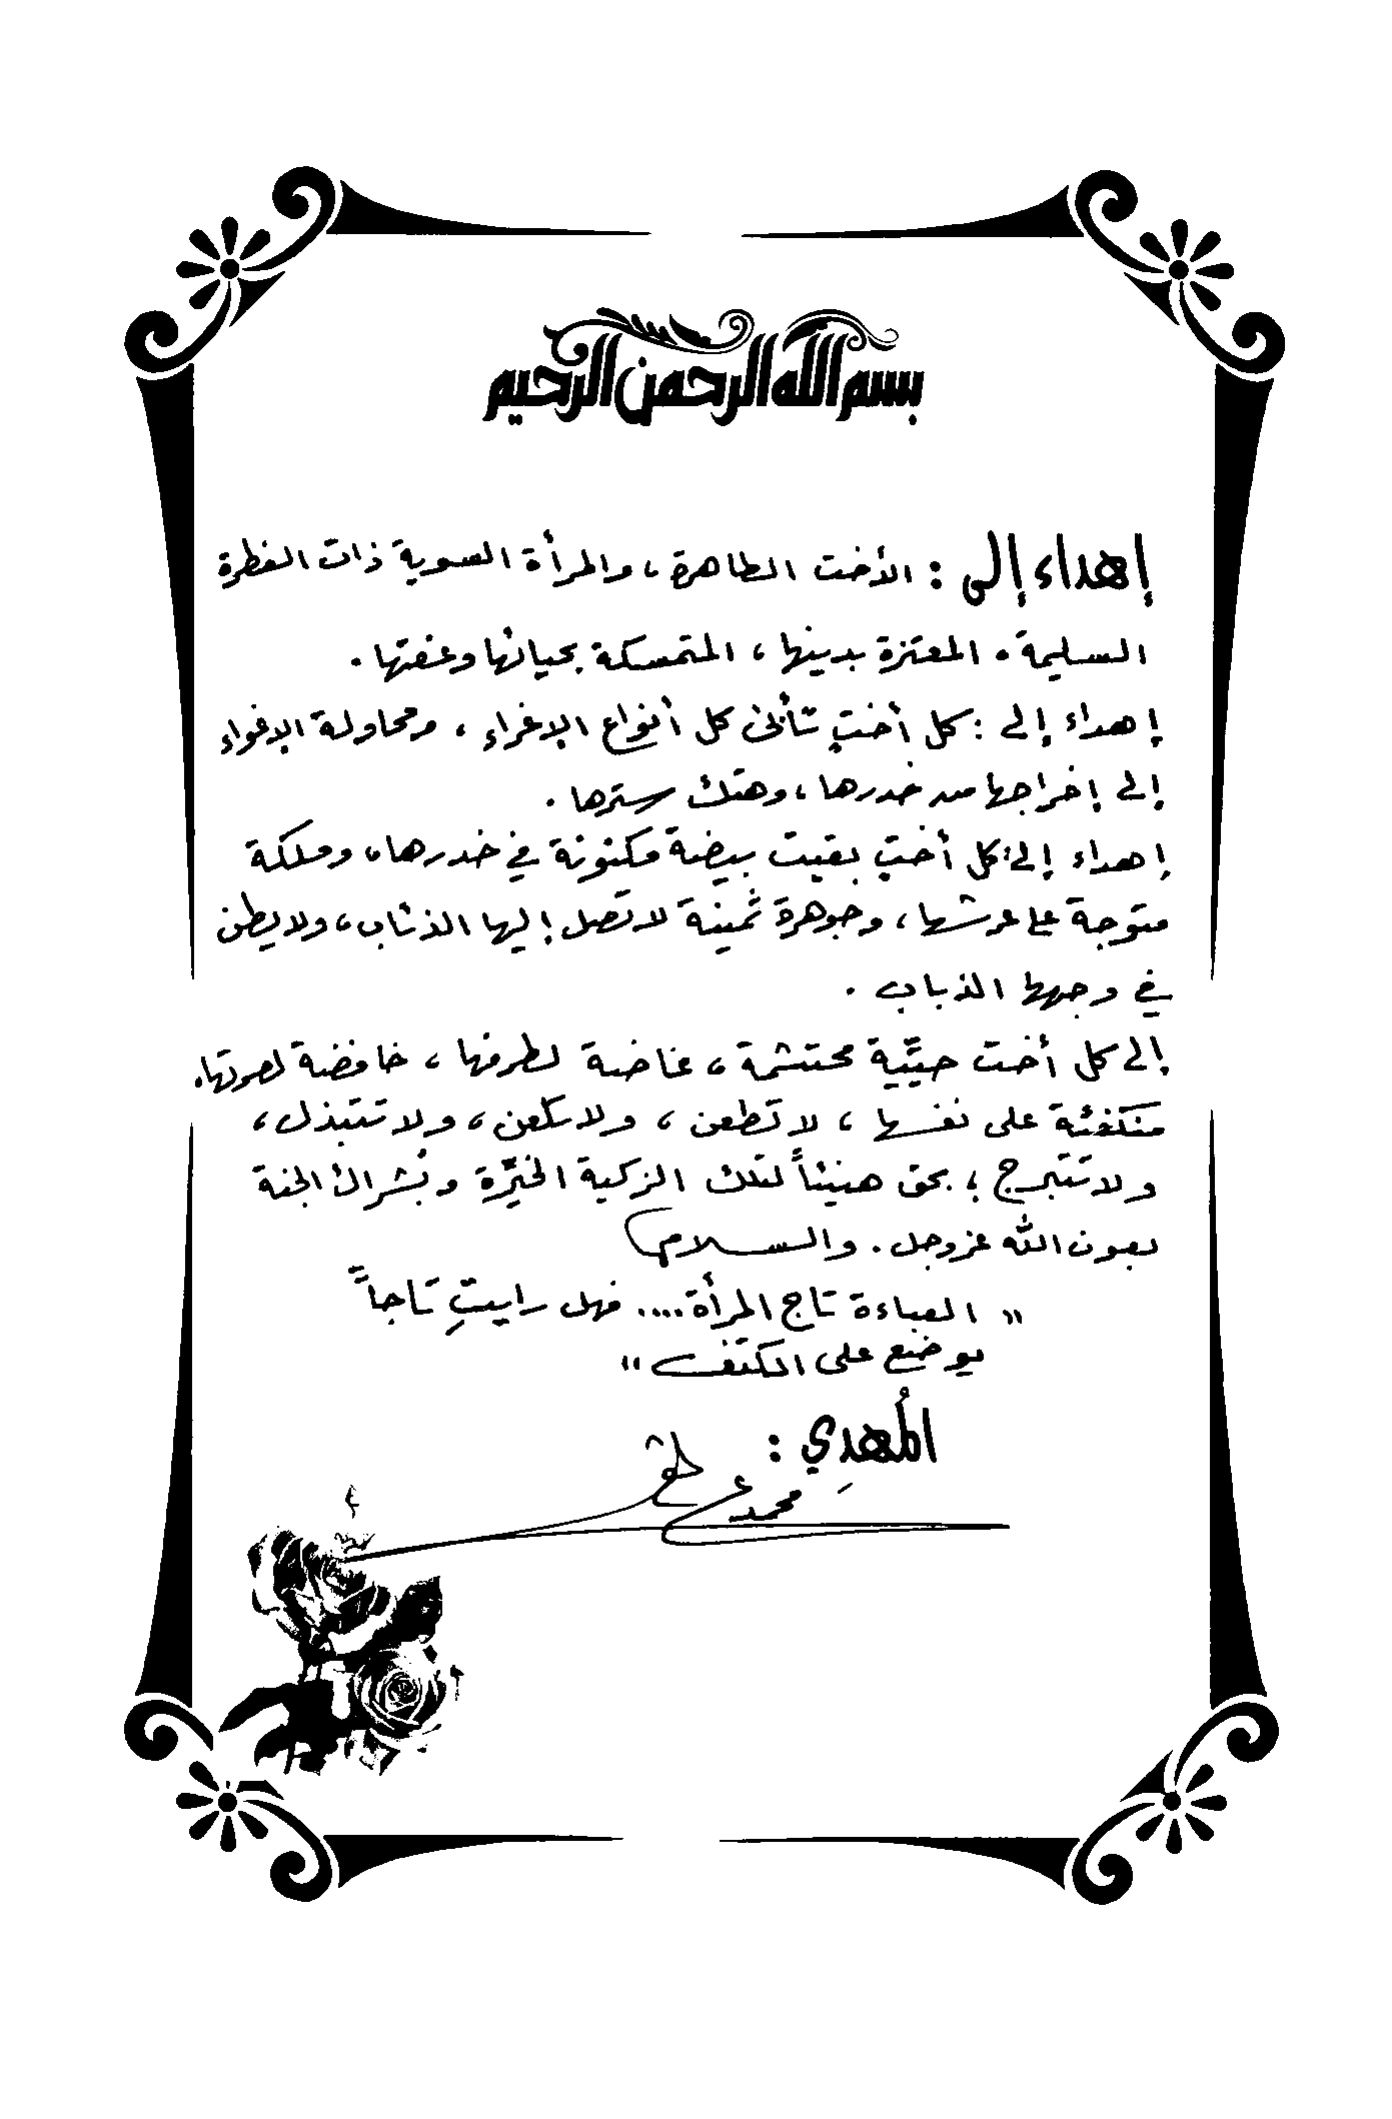 بسم الله الرحمن الرحيم
إهداء إلى : الأخت الطاهرة، والمرأة السوية ذات الفطرة
السليمة. المعتزة بدينها، المتمسكة بحيائها وعفتها.
إهداء إلى : كل أختٍ تأبى كل أنواع الإغراء، ومحاولة الإغواء
إلى إخراجها من خدرها، وهتك سترها.
إهداء إلى كل أختٍ بقيت بيضة مكنونة في خدرها، وملكة
متوجة على عرشها، وجوهرة ثمينة لا تصل إليها الذئاب، ولا يطن
في وجهها الذباب.
إلى كل أخت حييَّة محتشمة، غاضة لطرفها، خافضة لصوتها،
منكفئة على نفسها، لا تطعن، ولا تلعن، ولا تتبذل،
ولا تتبرج؛ بحق هنيئاً لتلك الزكية الخيِّرة وبُشراك الجنة
بعون الله عز وجل. والسلام
" العباءة تاج المرأة.... فهل رايتِ تَاجاً
يوضع على الكتف "
المُهدِي :
محمد